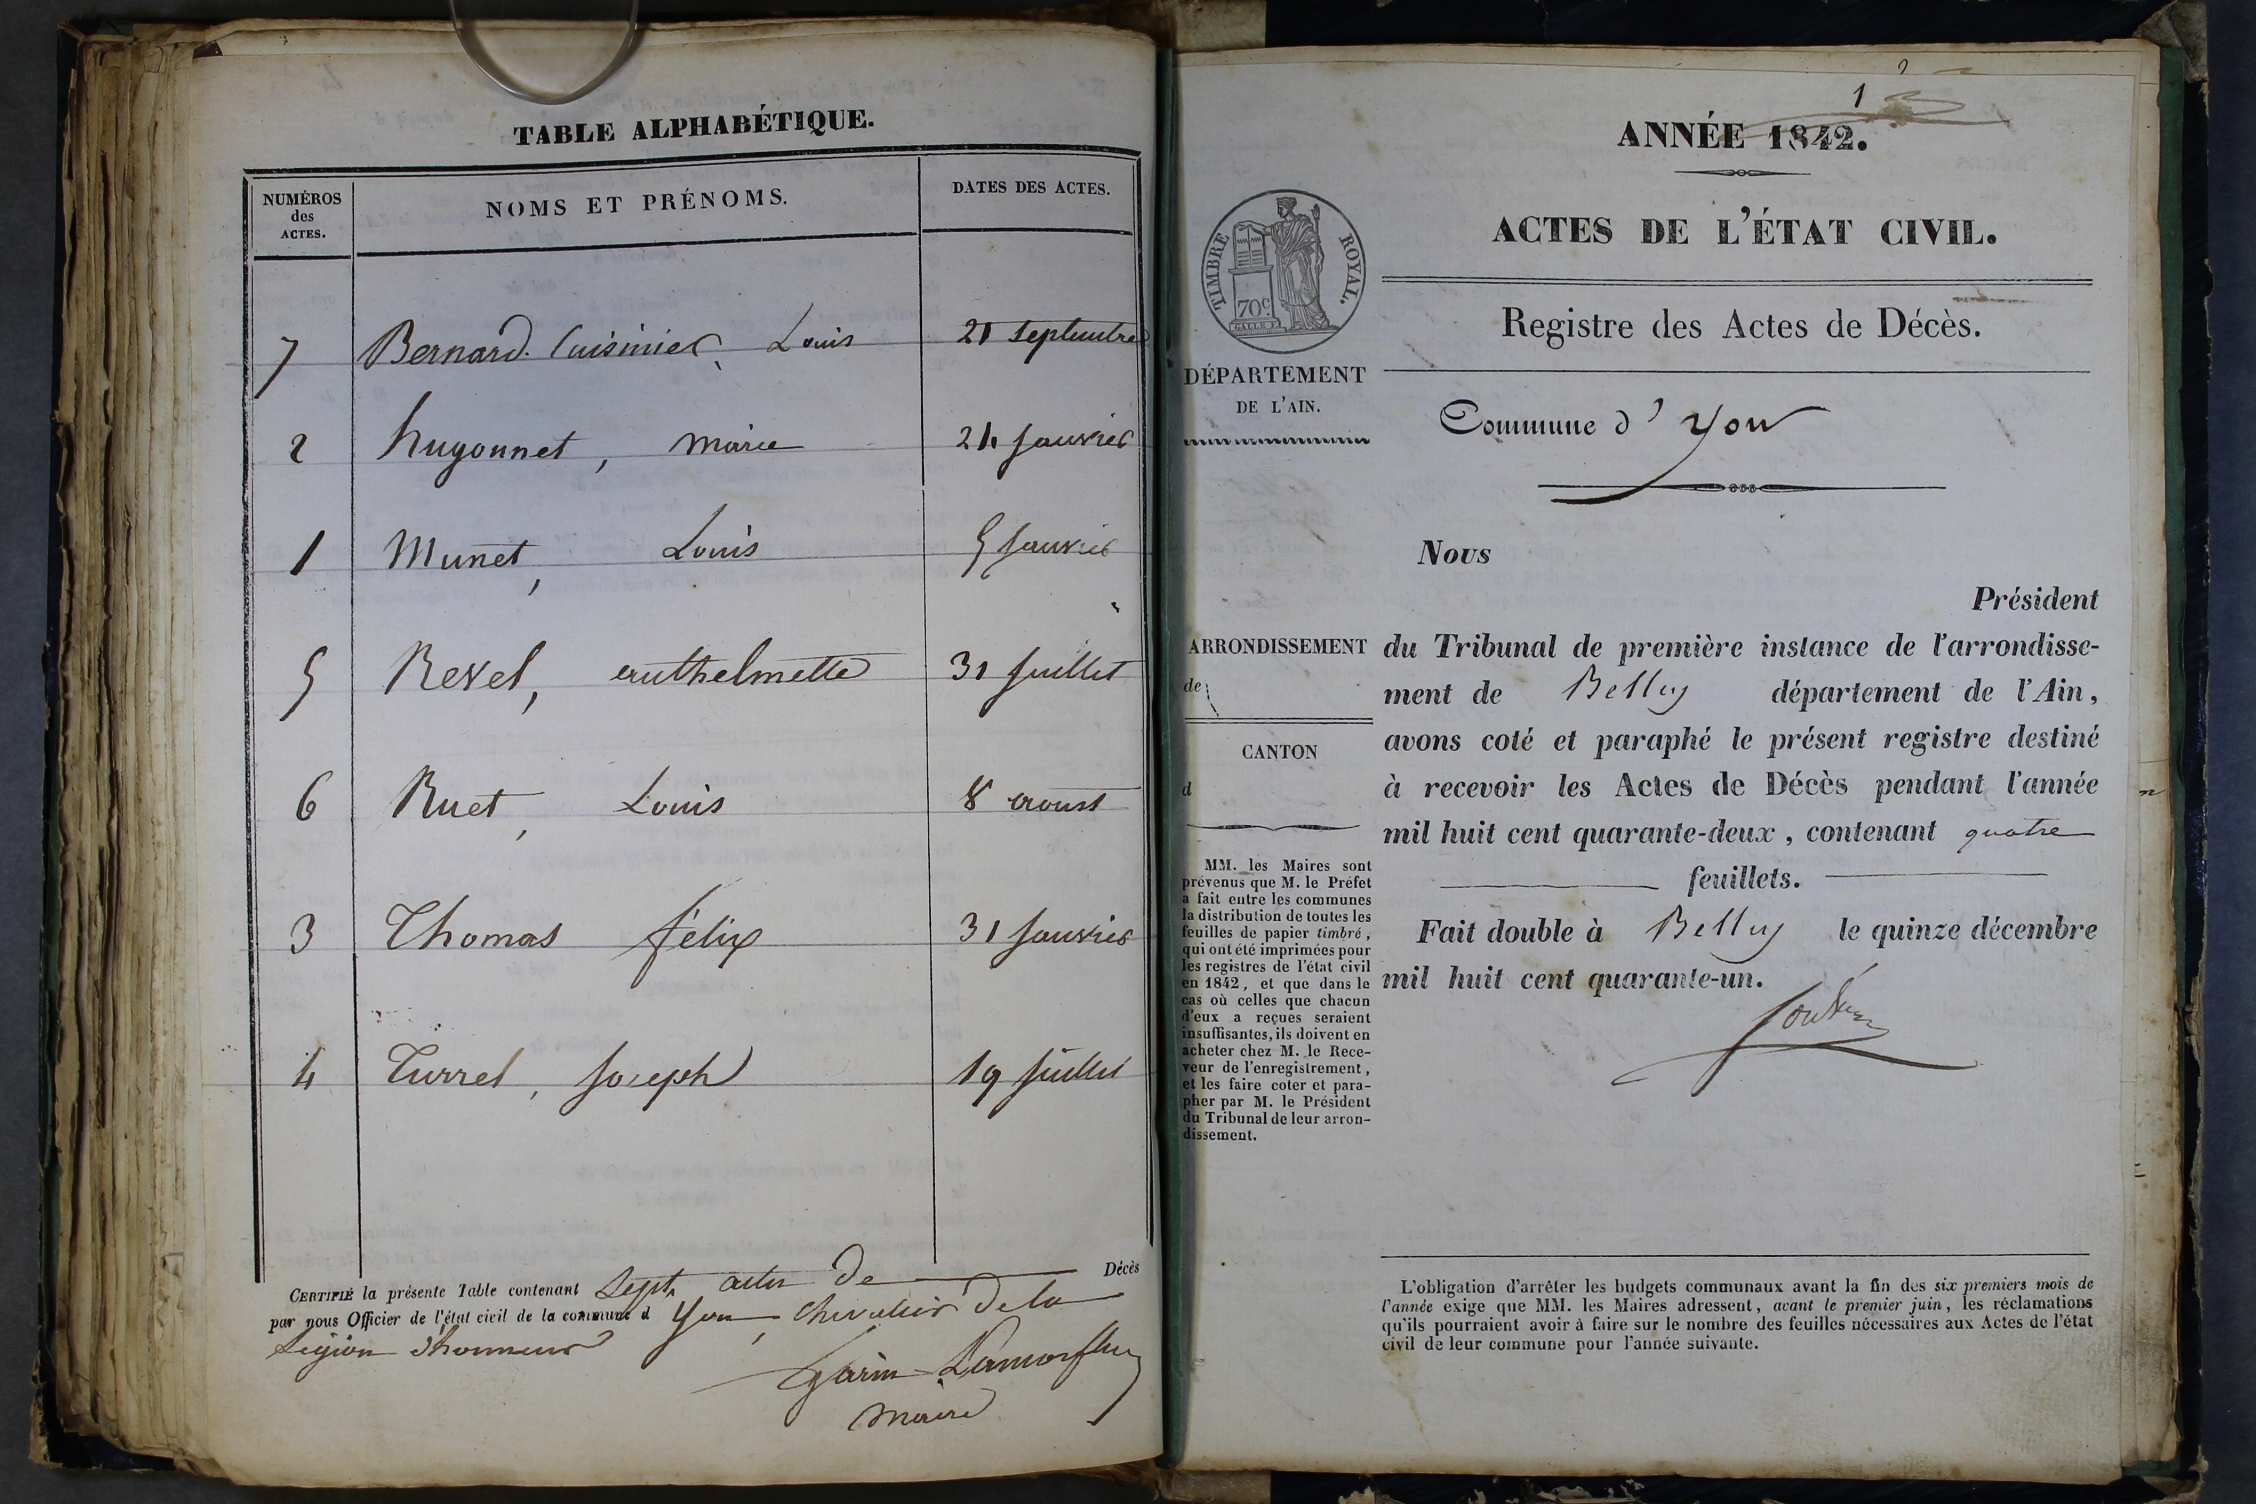 TABLE ALPHABÉTIQUE.
NUMÉROS des ACTES.
NOMS ET PRÉNOMS.
DATES DES ACTES.
7 Bernard. Cuisinier, Louis 21 septembre
2 hugonnet, marie 24 janvier
1 Munet, Louis 5 janvier
5 Revel, anthelmette 31 juillet
6 Ruet, Louis 8 aoust
3 Thomas félix 31 janvier
4 Turrel, joseph 19 juillet
CERTIFIÉ la présente Table contenant sept actes de Décès
par nous Officier de l'état civil de la commune d yon, chevalier de la
Légion d'honneur
garin Lamorflan
maire
1
ANNÉE 1842.
ACTES DE L'ÉTAT CIVIL.
TIMBRE ROYAL.
70c
Registre des Actes de Décès.
DÉPARTEMENT
DE L'AIN.
Commune d' yon
Nous
Président
ARRONDISSEMENT
de
CANTON
d
du Tribunal de première instance de l'arrondisse-
ment de Belley département de l'Ain,
avons coté et paraphé le présent registre destiné
à recevoir les Actes de Décès pendant l'année
mil huit cent quarante-deux, contenant quatre
feuillets.
Fait double à Belley le quinze décembre
mil huit cent quarante-un.
MM. les Maires sont
prévenus que M. le Préfet
a fait entre les communes
la distribution de toutes les
feuilles de papier timbré,
qui ont été imprimées pour
les registres de l'état civil
en 1842, et que dans le
cas où celles que chacun
d'eux a reçues seraient
insuffisantes, ils doivent en
acheter chez M. le Rece-
veur de l'enregistrement,
et les faire coter et para-
pher par M. le Président
du Tribunal de leur arron-
dissement.
L'obligation d'arrêter les budgets communaux avant la fin des six premiers mois de
l'année exige que MM. les Maires adressent, avant le premier juin, les réclamations
qu'ils pourraient avoir à faire sur le nombre des feuilles nécessaires aux Actes de l'état
civil de leur commune pour l'année suivante.